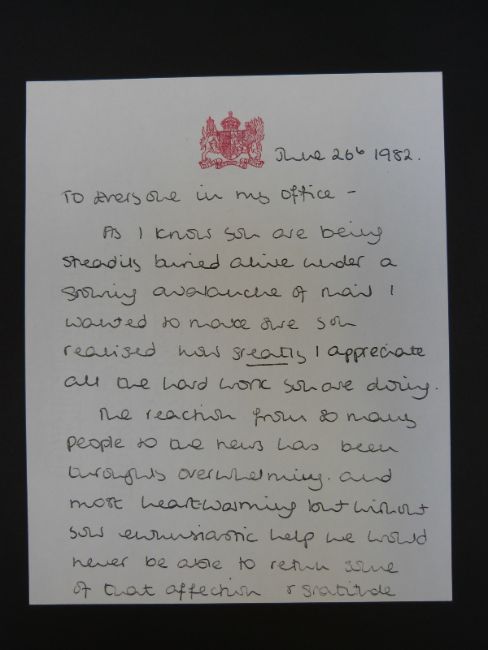 June 26th 1982.
To Everyone in my office –
As I know you are being
steadily buried alive under a
growing avalanche of mail I
wanted to make sure you
realised how greatly I appreciate
all the hard work you are doing.
The reaction from so many
people to the news has been
throughly overwhelming. and
most heartwarming but without
your enthusiastic help we would
never be able to return some
of that affection & gratitude